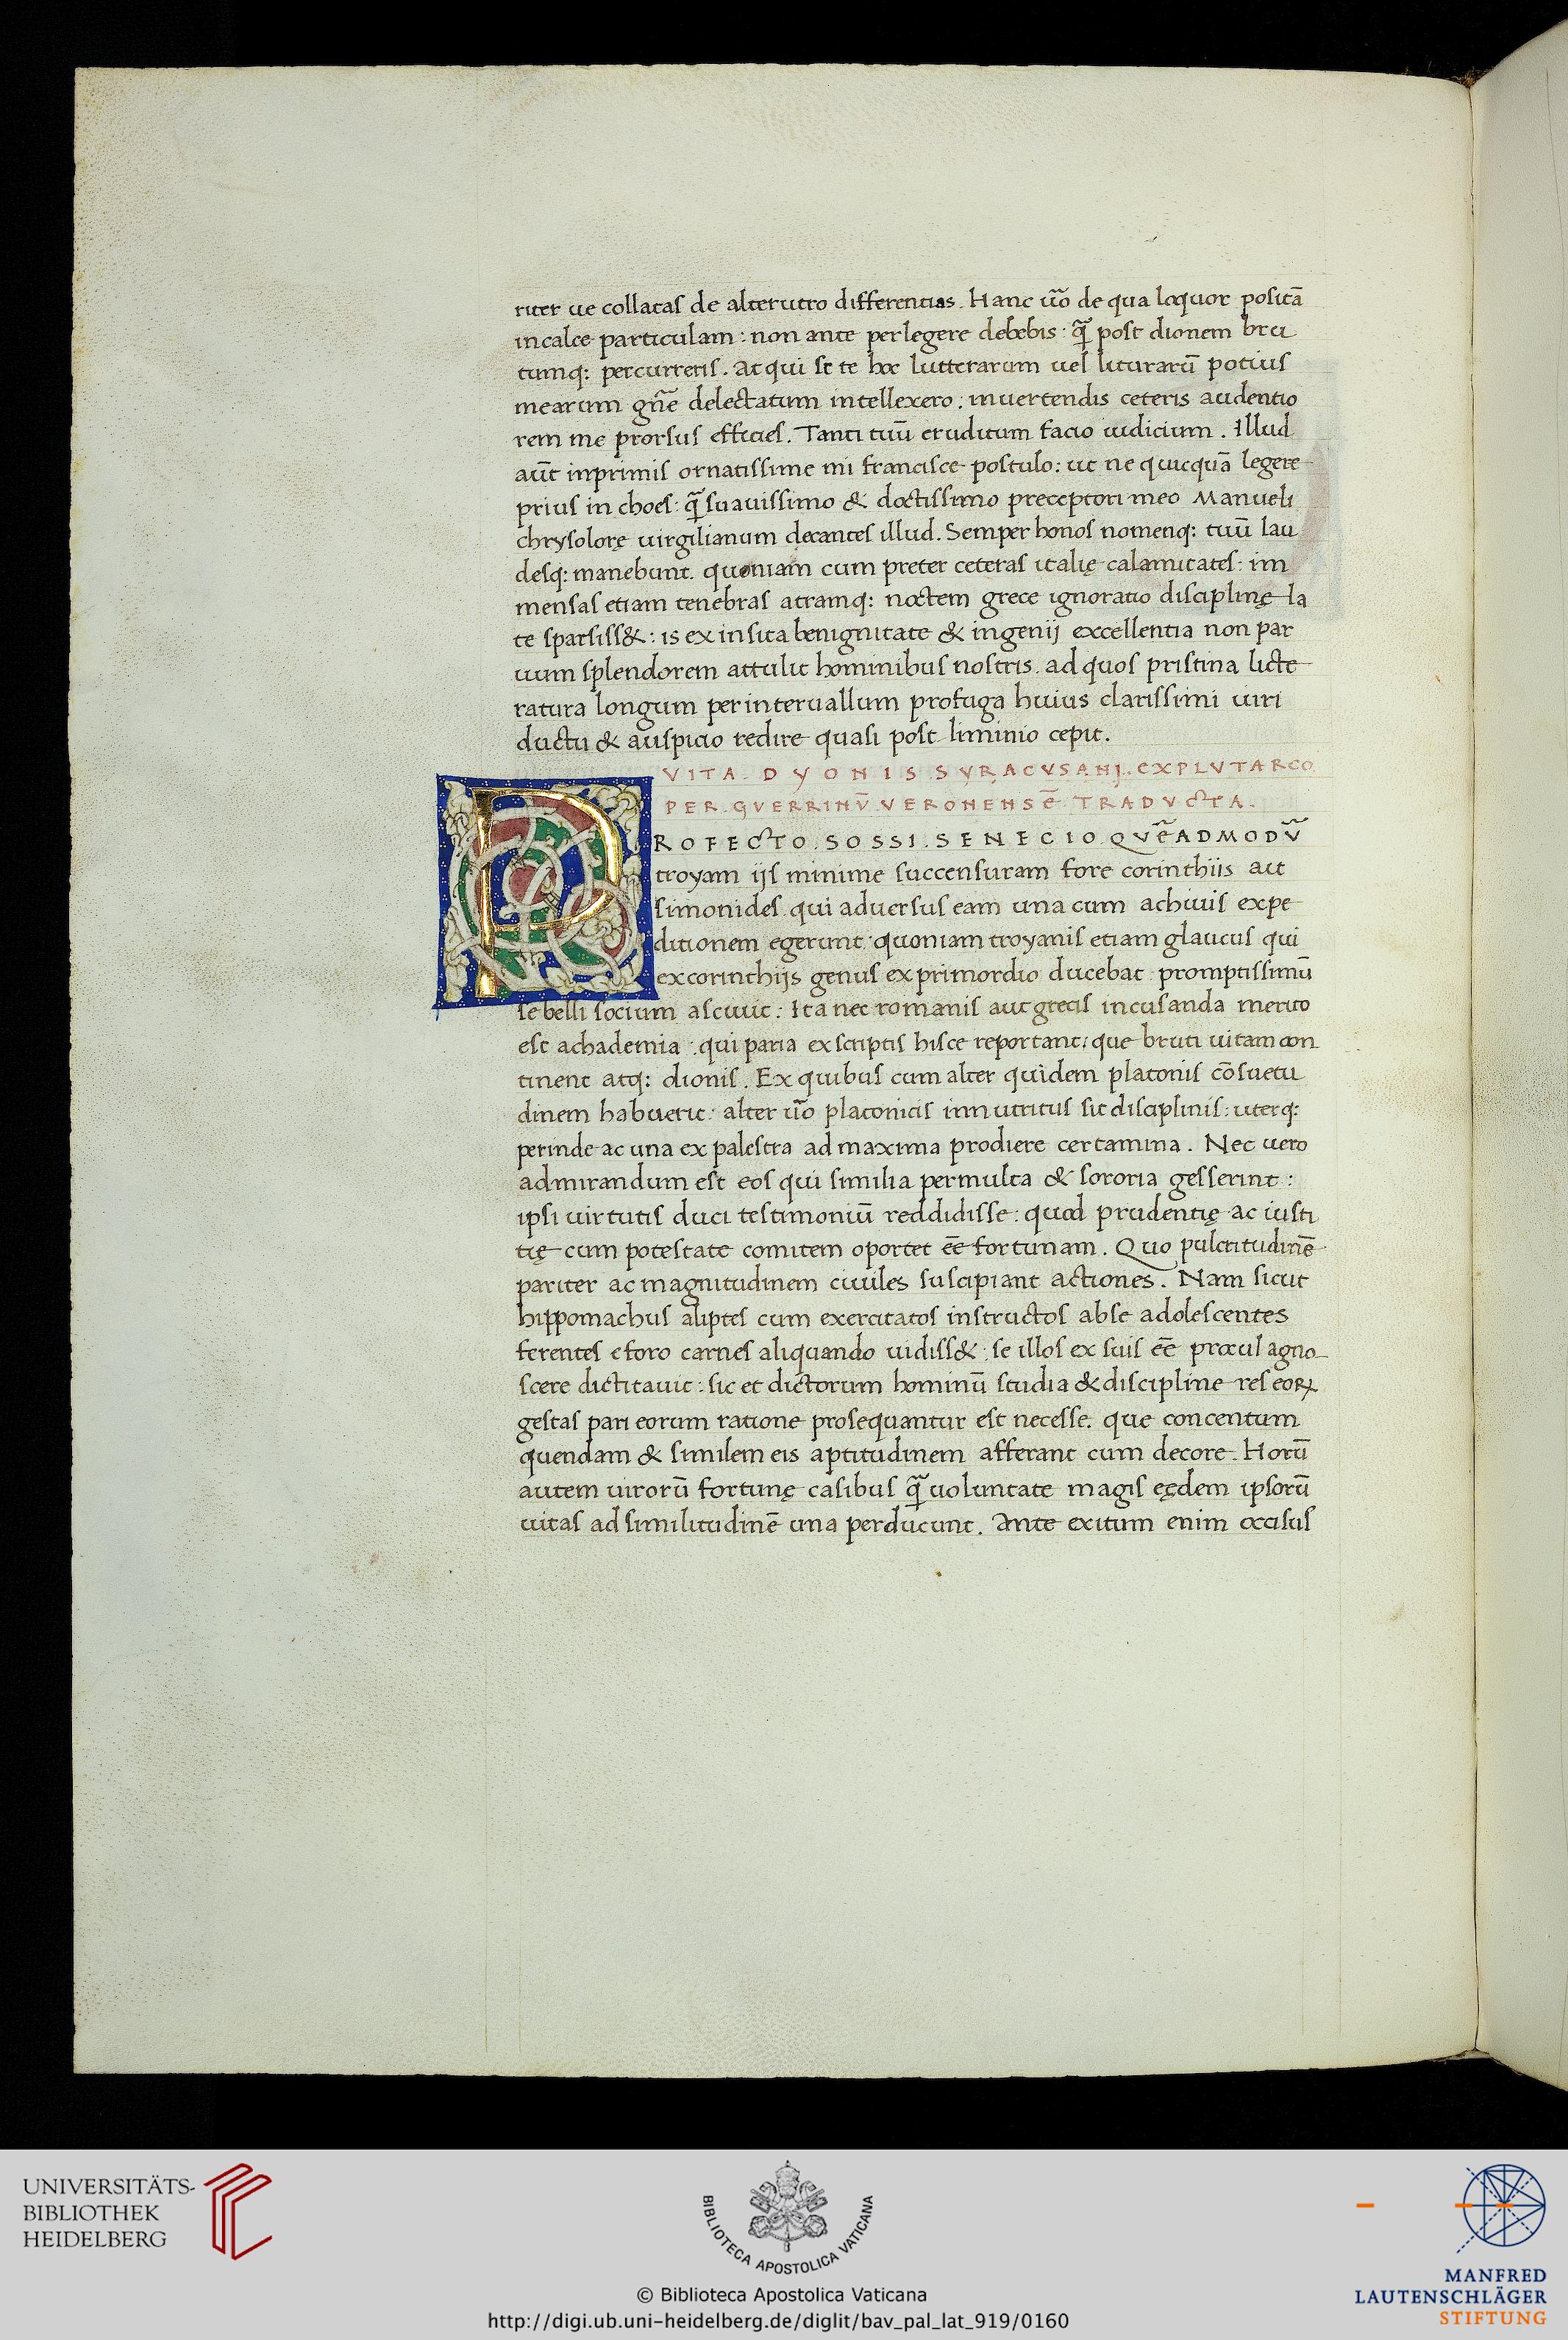 riter ue collatas de alterutro differentias. Hanc ũo de qua loquor positã
in calce particulam: non ante perlegere debebis: q̃ post dionem bru
tumq: percurreris. Atqui si te hoc lutterarum uel liturarũ potius
mearum gñe delectatum intellexero: inuertendis ceteris audentio
rem me prorsus efficies. Tanti tuũ eruditum facio iudicium. Illud
aũt inprimis ornatissime mi francisce postulo: ut ne quicquã legere
prius inchoes: q̃ suauissimo & doctissimo preceptori meo Manueli
chrysolorę uirgilianum decantes illud. Semper honos nomenq: tuũ lau
desq: manebunt. quoniam cum preter ceteras italię calamitates: im
mensas etiam tenebras atramq: noctem grece ignoratio disciplinę la
te sparsiss&: is ex insita benignitate & ingenij excellentia non par
uum splendorem attulit hominibus nostris. ad quos pristina licte
ratura longum per interuallum profuga huius clarissimi uiri
ductu & auspicio redire quasi post liminio cepit.
VITA. DYONIS SYRACVSANI. EX PLVTARCO
PER. GVERRINṼ. VERONENSẼ TRADVCTA.
PROFECTO. SOSSI. SENECIO QVẼADMODṼ
troyam ijs minime succensuram fore corinthiis ait
simonides. qui aduersus eam una cum achiuis expe
ditionem egerunt: quoniam troyanis etiam glaucus qui
ex corinthijs genus ex primordio ducebat promptissimũ
se belli socium asciuit: Ita nec romanis aut grecis incusanda merito
est achademia: qui paria ex scriptis hisce reportant: que bruti uitam con
tinent atq: dionis. Ex quibus cum alter quidem platonis cõsuetu
dinem habuerit: alter ũo platonicis innutritus sit disciplinis: uterq:
perinde ac una ex palestra ad maxima prodiere certamina. Nec uero
admirandum est eos qui similia permulta & sororia gesserint:
ipsi uirtutis duci testimoniũ reddidisse: quod prudentię ac iusti
tię cum potestate comitem oportet ẽe fortunam. Quo pulcritudinẽ
pariter ac magnitudinem ciuiles suscipiant actiones. Nam sicut
hippomachus aliptes cum exercitatos instructos abse adolescentes
ferentes e foro carnes aliquando uidiss&: se illos ex suis ẽe procul agno
scere dictitauit: sic et dictorum hominũ studia & discipline res eoꝝ
gestas pari eorum ratione prosequantur est necesse. que concentum
quendam & similem eis aptitudinem afferant cum decore. Horũ
autem uirorũ fortunę casibus q̃ uoluntate magis eędem ipsorũ
uitas ad similitudinẽ una perducunt. Ante exitum enim occisus
UNIVERSITÄTS-
BIBLIOTHEK
HEIDELBERG
BIBLIOTECA APOSTOLICA VATICANA
© Biblioteca Apostolica Vaticana
http://digi.ub.uni-heidelberg.de/diglit/bav_pal_lat_919/0160
MANFRED
LAUTENSCHLÄGER
STIFTUNG